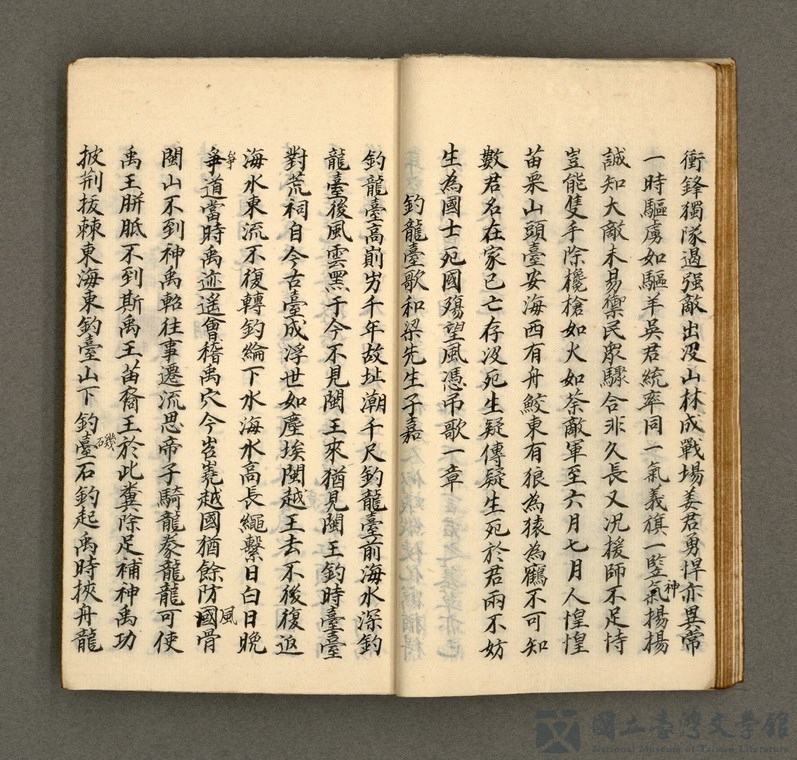 衝鋒獨隊遏强敵出沒山林成戰場姜君勇悍亦異常
一時驅虜如驅羊吳君統率同一氣義旗一豎氣揚揚
神
誠知大敵未易禦民眾驟合非久長又況援師不足恃
豈能隻手除欃槍如火如荼敵軍至六月七月人惶惶
苗栗山頭臺安海西有舟鮫東有狼為猿為鶴不可知
數君名在家已亡存沒死生疑傳疑生死於君兩不妨
生為國士死國殤望風憑吊歌一章
釣龍臺歌和梁先生子嘉
釣龍臺高前岃千年故址潮千尺釣龍臺前海水深釣
龍臺後風雲黑于今不見閩王來猶見閩王釣時臺臺
對荒祠自今古臺成浮世如塵埃閩越王去不後復返
海水東流不復轉釣綸下水海水高長繩繫日白日晚
爭道當時禹迹遙會稽禹穴今岧嶤越國猶餘防國骨
爭
風
閩山不到神禹軺往事遷流思帝子騎龍豢龍龍可使
禹王胼胝不到斯禹王苗裔王於此糞除足補神禹功
披荆拔棘東海東釣臺山下釣臺石釣起禹時挾舟龍
磯